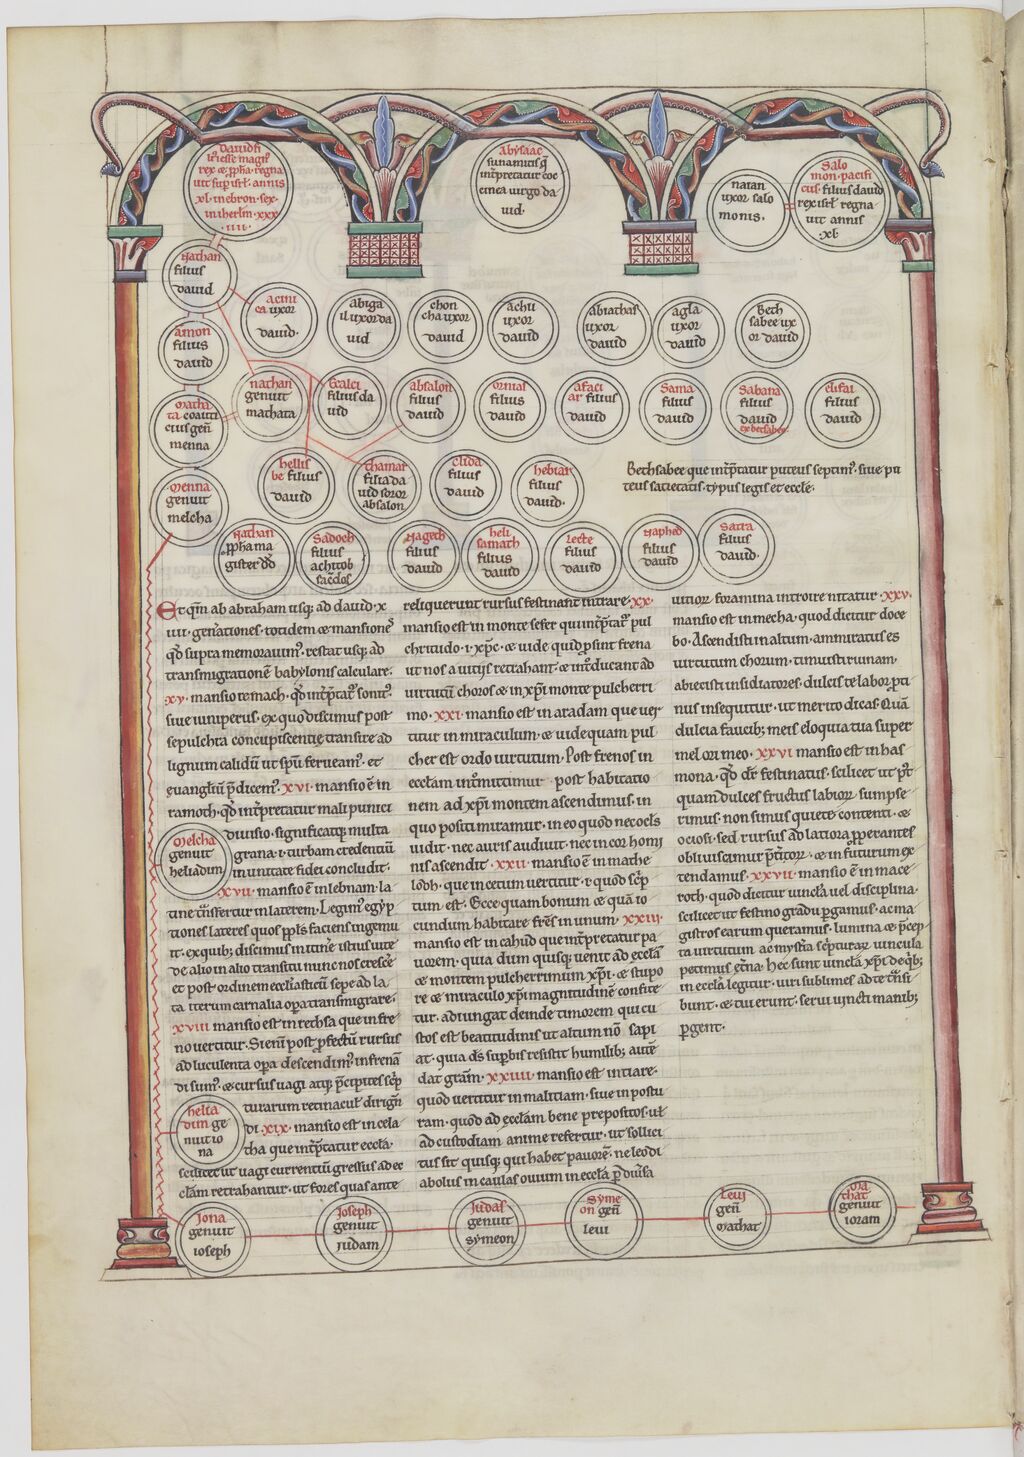 Dauid fi
rex & ꝓpha · regna
uit sup isrl · annis
xl · in ebron · sex ·
in iherlm · xxx
· iii ·
Abysaac
sunamitis q̄
int̄pretatur coc
cinea uirgo da
uid ·
naran
uxor salo
monis ·
Salo
mon · pacifi
cus · filius dauid
rex isrl̄ regna
uit annis
· xl ·
Nathan
filius
dauid
Amon
filius
dauid
uxor
dauid ·
abiga
il uxor da
uid
chon
cha uxor
dauid
achu
uxor
dauid
abiathas
uxor
dauid
agla
uxor
dauid
Beth
sabee ux
or dauid
Matha
ta coauti
cius geñ
menna
nathan
genuit
mathata
filius da
uid
absalon
filius
dauid
ornias
filius
dauid
filius
dauid
Sama
filius
dauid
Sabana
filius
dauid
ex bersabee
elifai
filius
dauid
Menna
genuit
melcha
hellis
be filius
dauid
thamar
filia da
uid soror
absalon
elida
filius
dauid
hebiar
filius
dauid ·
Bethsabee que int̄p̄tatur puteus septim᷒ · siue pu
teus satietatis · typus legis et eccl̄e ·
Nathan
ꝓpha ma
gister dd̄
Sadoch
filius
achitob
sac̄dos
Nageth
filius
dauid
heli
samath
filius
dauid
iecte
filius
dauid
Napheg
filius
dauid
Sarra
filius
dauid ·
Et qm̄ ab abraham usq; ad dauid · x
iiii · gen̄ationes · totidem & mansiones
qd̄ supra memorauim᷒ · restat usq; ad
transmigrationē babylonis calculare ·
· xv · mansio remach · qd̄ int̄p̄tat᷒ sonit᷒ ·
siue iuniperus · ex quo discimus post
sepulchra concupiscentię transire ad
lignum calidū ut sp̄u ferueam᷒ · et
euangliū p̄dicem᷒ · xvi · mansio ē in
ramoth · qd̄ int̄pretatur mali punici
diuisio · significatq; multa
grana · i · turbam credentiū
in unitate fidei concludit ·
Melcha
genuit
heliadum
· xvii · mansio ē in lebnam · la
tine t̄nsfertur in laterem · Legim᷒ egyp
tiones lateres quos ppl̄s faciens ingemu
it · ex quib; discimus in itin̄e istius uite
de alio in alio transitu nunc nos cresc̄e
et post ordinem eccl̄iasticū sepe ad la
ta iterum carnalia oꝑa transmigrare ·
xviii mansio est in rechsa que in fre
no uertitur · Si eni᷒ post ꝓfectū rursus
ad luculenta oꝑa descendim᷒ · infrenā
di sum᷒ · & cursus uagi atq; p̄cipites sc̄p
turarum retinacul᷒ dirign̄
di · xix · mansio est in cela
tha que int̄p̄tatur eccl̄a ·
helia
dum ge
nuit io
na
scilicet ut uagi currentiū gressus ad ec
cl̄am retrahantur · ut fores quas ante
reliquerunt rursus festinant intrare · xx ·
mansio est in monte sefer qui int̄p̄tat᷒ pul
chritudo · i · xp̄c · & uide quid ꝓsint frena
ut nos a uitijs retrahant · & int̄ducant ad
uirtutū choros & in xp̄i monte pulcherri
mo · xxi · mansio est in aradam que uer
titur in miraculum · & uide quam pul
cher est ordo uirtutum · Post frenos in
eccl̄am int̄mittimur · post habitatio
nem ad xp̄i montem ascendimus · in
quo positi miramur · in eo quod nec ocl̄s
uidit · nec auris audiuit · nec in cor homi
nis ascendit · xxii · mansio ē in mathe
loth · que in cetum uertitur · & quod sc̄p
tum est · Ecce quam bonum & quā io
cundum habitare fr̄es in unum · xxiii ·
mansio est in cahud que int̄pretatur pa
uorem · quia dum quisq; uenit ad eccl̄am
& montem pulcherrimum xp̄i · & stupo
re & miraculo xp̄i magnitudinē confite
tur · adiungat deinde timorem qui cu
stos est beatitudinis ut altum nō sapi
at · quia d̄s suꝑbis resistit humilib; autē
dat gr̄am · xxiiii · mansio est in tare ·
quod uertitur in malitiam · siue in postu
ram · quod ad eccl̄am bene prepositos · ul̄
ad custodiam anime refertur · ut sollici
tus sit quisq; qui habet pauorē · ne leo di
abolus in caulas ouium in eccl̄a ꝑ diu̇sa
uitior foramina introire nitatur · xxv ·
mansio est in mecha · quod dicitur dolce
bo · Ascendisti in altum · ammiratus es
uirtutum chorum · timuisti ruinam ·
abiecisti insidiatores · dulcis te labor ꝓti
nus insequitur · ut merito dicas · Quā
dulcia faucib; meis eloquia tua super
mel ori meo · xxvi mansio est in has
mona · qd̄ dr̄ festinatus · scilicet ut p̄t
quam dulces fructus labior᷒ sumpse
rimus · non simus quiete contenti · &
ociosi · sed rursus ad latiora ꝓperantes
obliuiscimur p̄titor᷒ · & in futurum ex
tendamus · xxvii · mansio ē in mace
roth · quod dicitur uincl̄a uel disciplina ·
scilicet ut festino gradu ꝑgamus · ac ma
gistros earum queramus · lumina & p̄cep
ta uirtutum ac mysti̇a sc̄pturar᷒ uincula
petimus et̄na · Hec sunt uincl̄a xp̄i de qb;
in eccl̄a legitur · uiri sublimes ad te t̄nsi
bunt · & tui erunt · serui uincti manib;
ꝑgent ·
Iona
genuit
ioseph
Ioseph
genuit
iudam
Iudas
genuit
symeon
Syme
on geñ
leui
Leui
geñ
mathat
Ma
that
genuit
ioram